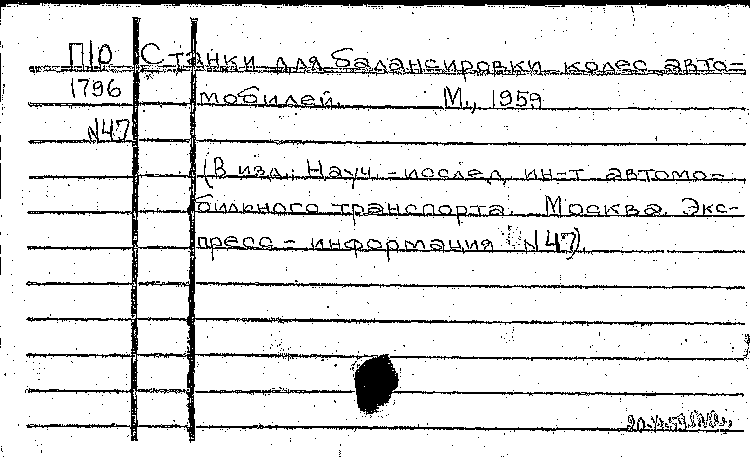 П10 Станки для балансировки колес авто=
1796 мобилей. М., 1959
N47
(В изд.: Науч.-исслед. ин-т автомо=
бильного транспорта. Москва. Экс-
пресс-информация N47).